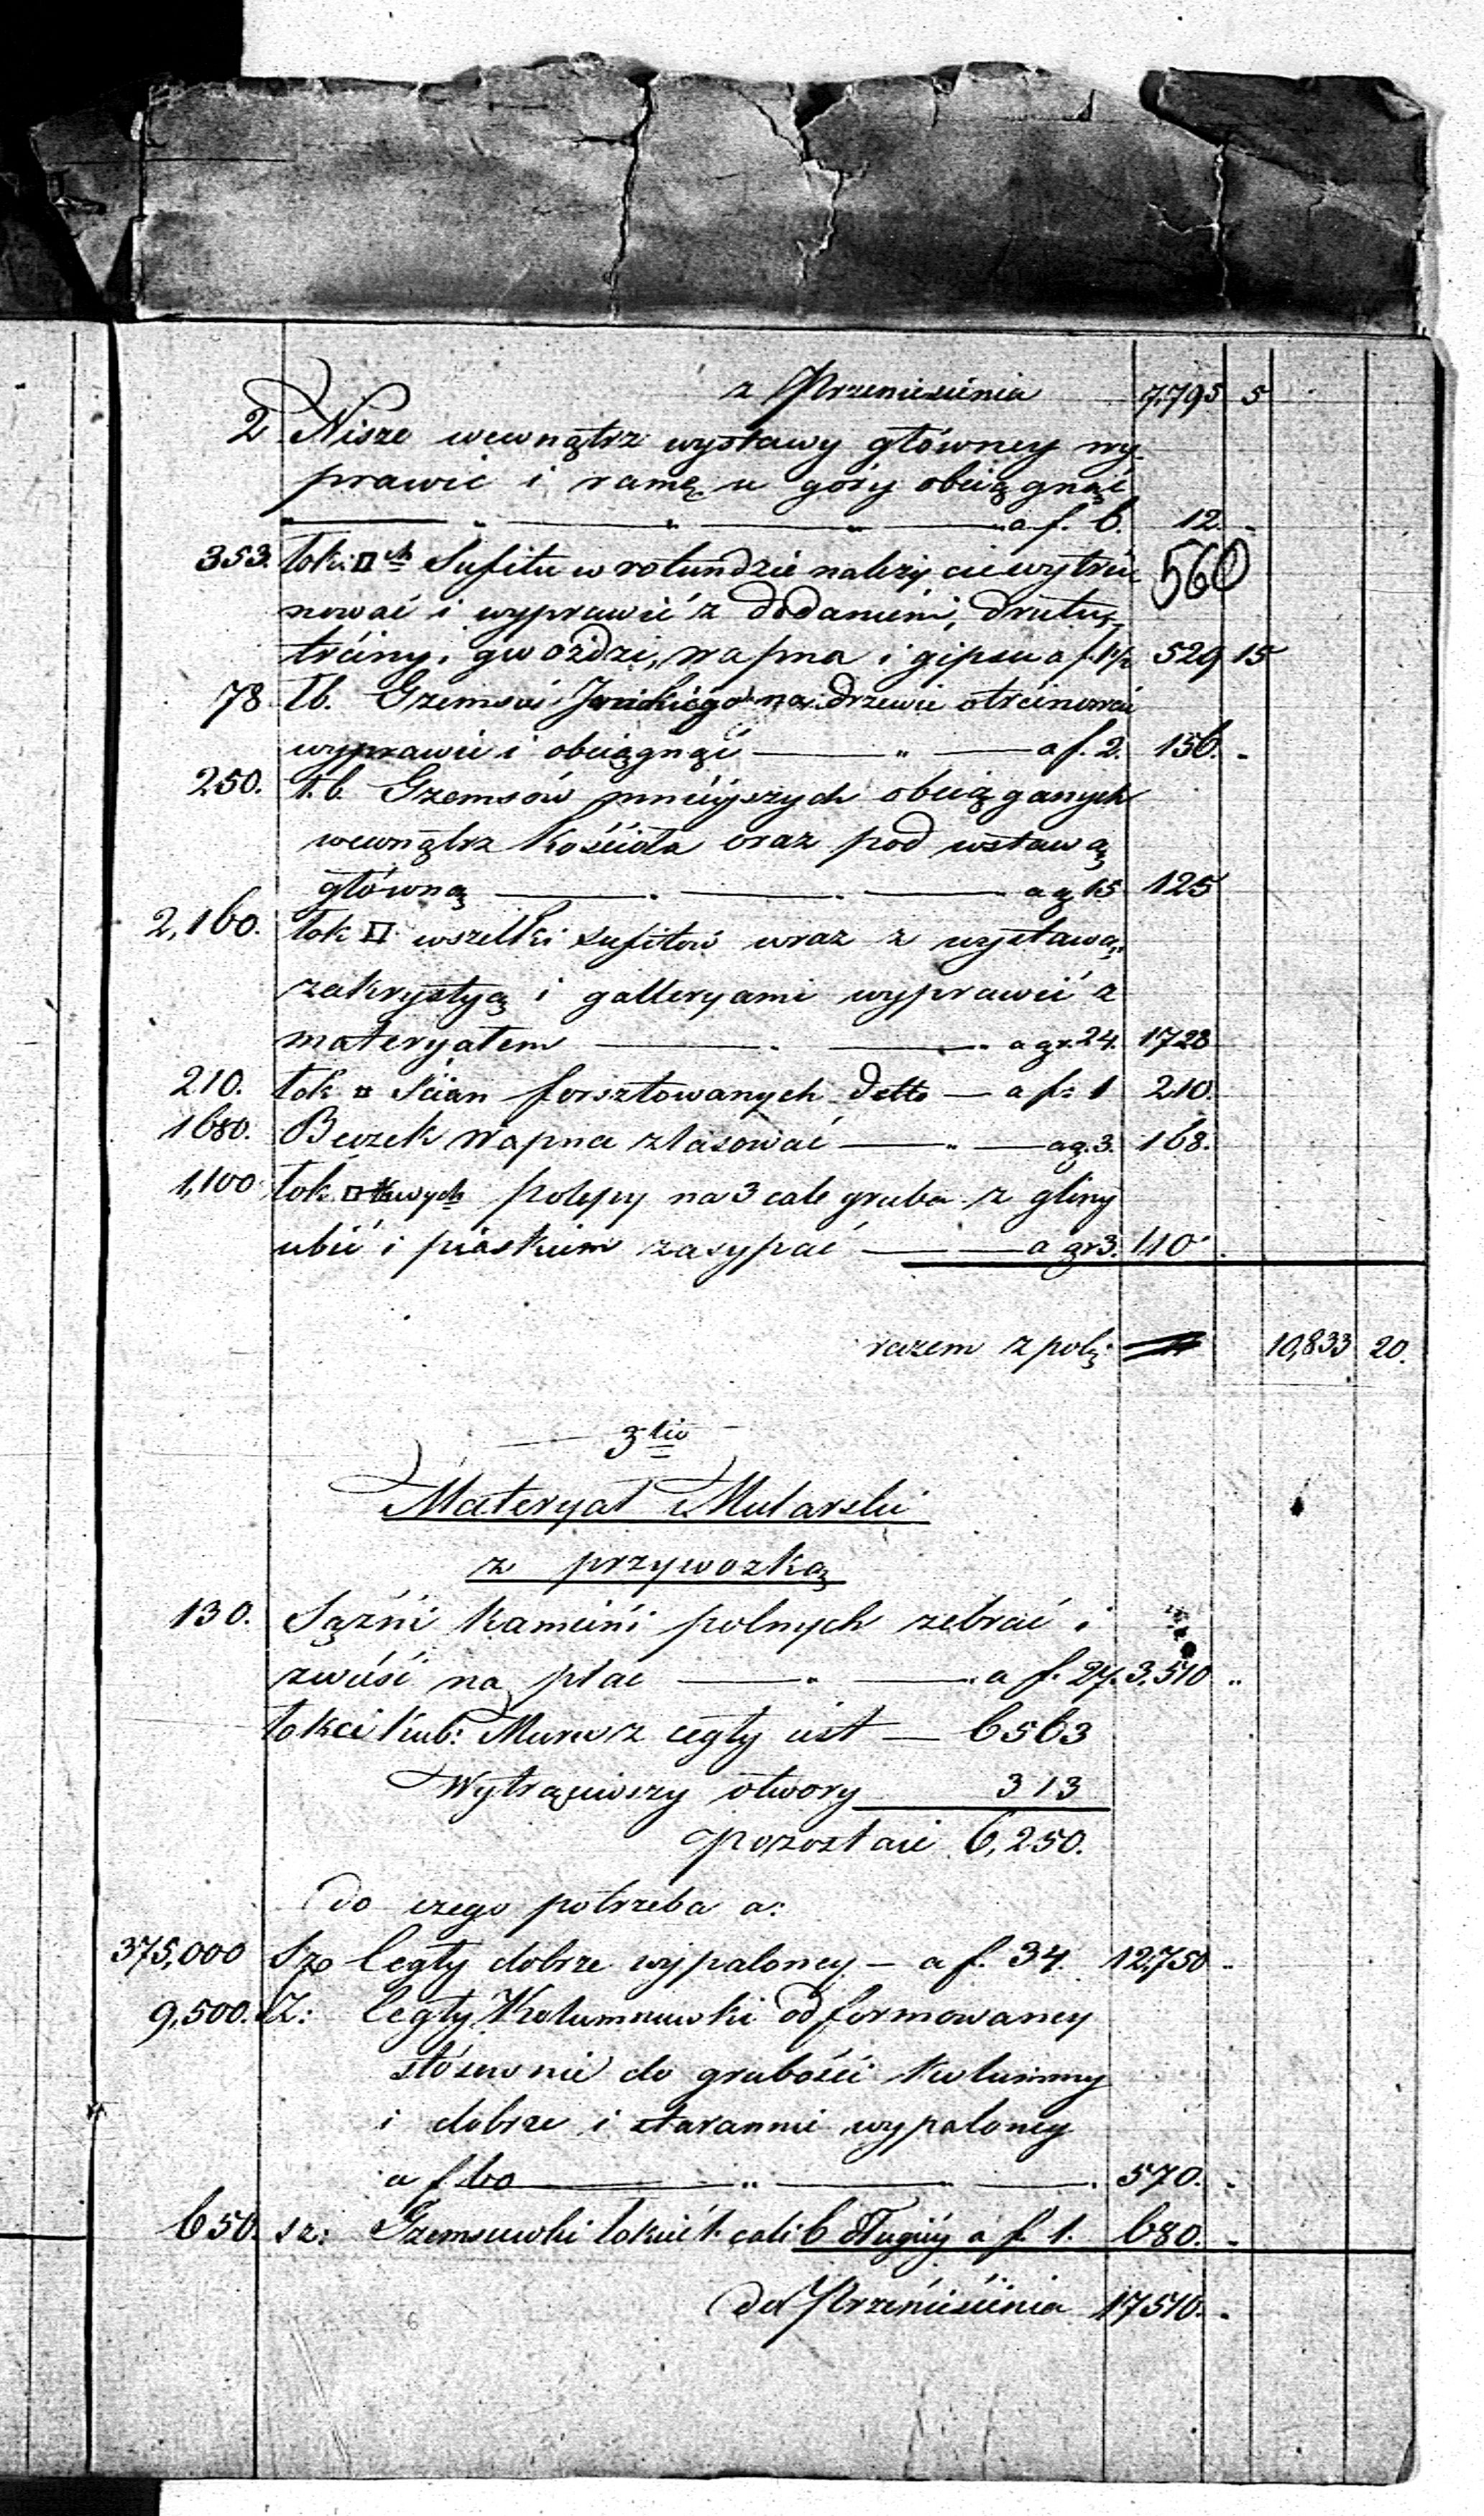 z Przeniesienia 7,795 5
2 Nisze wewnątrz wystawy główney wy
prawić i ramę u góry obciągnąć
" " " a f. 6. 12. -
353. łok: □ch Sufitu w rotundzie należycie wytrści
560
nować i wyprawić z dodaniem, drutu,
trściny, gwoździ, wapna i gipsu a f. 1½ 529 15
78 łb. Gzemsu na drzewie otrcinować
wyprawić i obciągnąć " a f. 2. 156. -
250. ł. b. Gzemsów mnieyszych obciąganych
wewnątrz Kościoła oraz pod wstawą
główną a g. 15 125
2,160. łok □ wszelki sufitów wraz z wystawą,
zakrystyą i galleryami wyprawić z
materyałem a gr. 24. 1728
210. łok □ Ścian forsztowanych detto — a f: 1 210.
1680. Beczek Wapna zlasować " a g. 3. 168.
1,100 łok. □towych polepy na 3 cale grubo z gliny
ubić i piaskiem zasypać a gr 3. 110 .
razem z pol: 10,833 20.
3tio
Materyał Mularski
z przywozką
130. Sążni Kamieni polnych zebrać i
zwieść na plac " a f. 27. 3,510 "
łokci Kub: Muru z cegły iest — 6563
Wytrąciwszy otwory 313
pozostaie 6,250.
do czego potrzeba a:
375,000 Szo Cegły dobrze wypaloney — a f. 34. 12,750 -
9,500. SZ: Cegły Kolumnuwki odformowaney
stósownie do grubości Kolumny
i dobrze i starannie wypaloney
a f 60 " 570. -
650. sz: Gzemsuwki łokieć 1. cali 6 długiéy a f. 1. 680. -
do Przeniesienia 17510. -